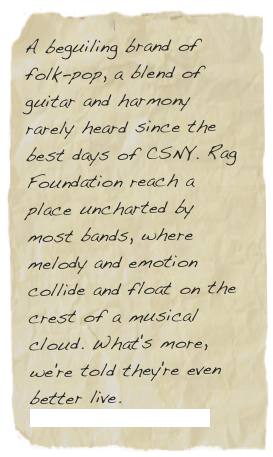 A beguiling brand of
folk-pop, a blend of
guitar and harmony
rarely heard since the
best days of CSNY. Rag
Foundation reach a
place uncharted by
most bands, where
melody and emotion
collide and float on the
crest of a musical
cloud. What's more,
we're told they're even
better live.